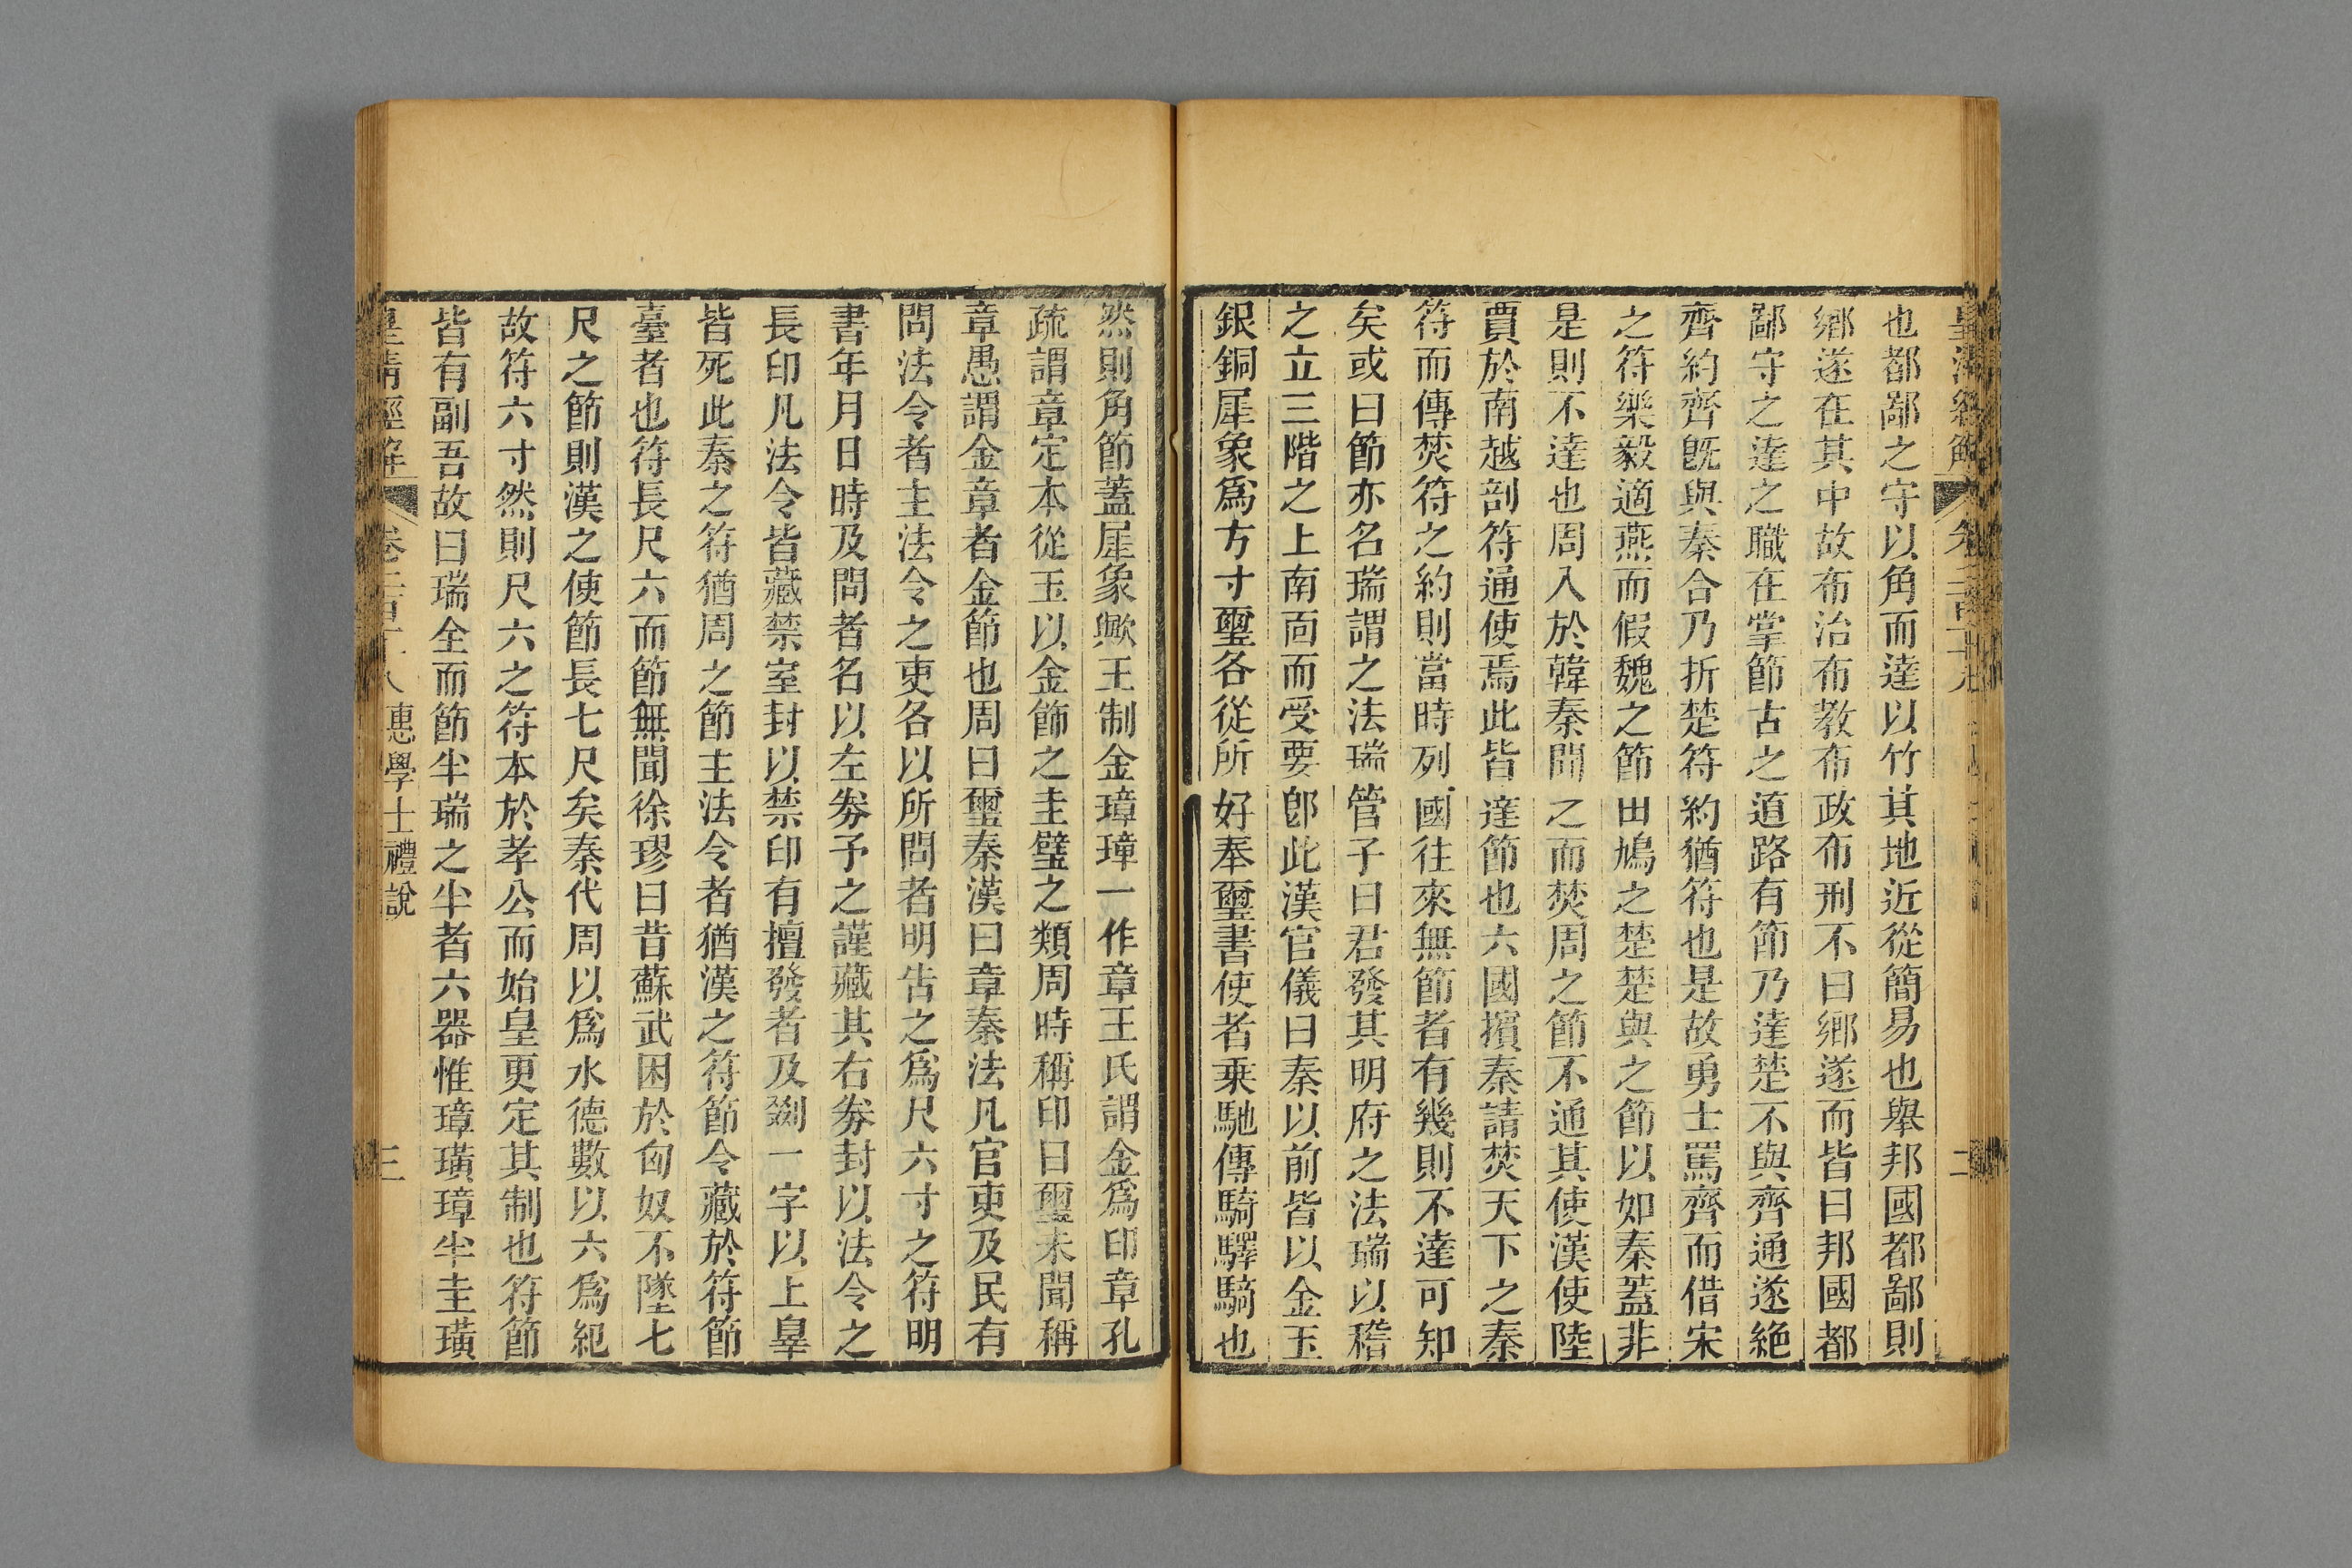 也都鄙之守以角而達以竹其地近從簡易也舉邦國都鄙則
鄉遂在其中故布治布教布政布刑不曰鄉遂而皆曰邦國都
鄙守之達之職在掌節古之道路有節乃達楚不與齊通遂絕
齊約齊旣與秦合乃折楚符約猶符也是故勇士罵齊而借宋
之符樂毅適燕而假魏之節田鳩之楚楚與之節以如秦蓋非
是則不達也周入於韓秦閒之而焚周之節不通其使漢使陸
賈於南越剖符通使焉此皆達節也六國擯秦請焚天下之秦
符而傳焚符之約則當時列國往來無節者有幾則不達可知
矣或曰節亦名瑞謂之法瑞管子曰君發其明府之法瑞以稽
之立三階之上南面而受要卽此漢官儀曰秦以前皆以金玉
銀銅犀象爲方寸璽各從所好奉璽書使者乘馳傳騎驛騎也
然則角節蓋犀象歟王制金璋璋一作章王氏謂金爲印章孔
疏謂章定本從玉以金飾之圭璧之類周時稱印曰璽未聞稱
章愚謂金章者金節也周曰璽秦漢曰章秦法凡官吏及民有
問法令者主法令之吏各以所問者明告之爲尺六寸之符明
書年月日時及問者名以左劵予之謹藏其右劵封以法令之
長印凡法令皆藏禁室封以禁印有擅發者及剟一字以上辠
皆死此秦之符猶周之節主法令者猶漢之符節令藏於符節
臺者也符長尺六而節無聞徐璆曰昔蘇武困於匈奴不墜七
尺之節則漢之使節長七尺矣秦代周以爲水德數以六爲紀
故符六寸然則尺六之符本於孝公而始皇更定其制也符節
皆有副吾故曰瑞全而節半瑞之半者六器惟璋璜璋半圭璜
皇清經解 惠學士禮說 三